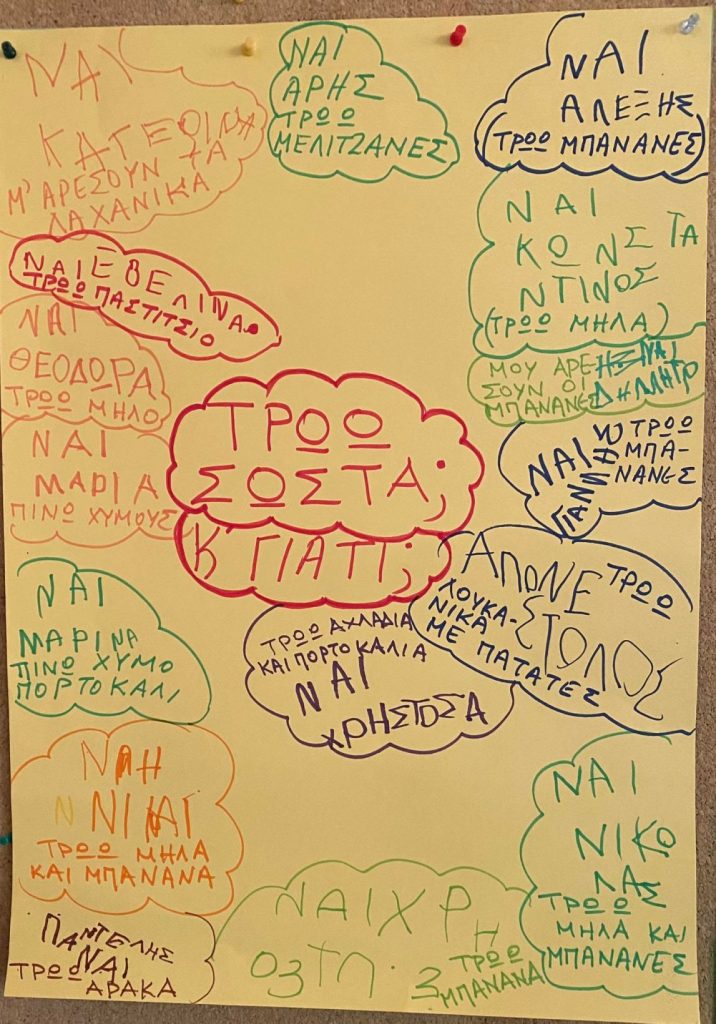 ΝΑΙ
ΚΑΤΕΡΙΝΑ
Μ' ΑΡΕΣΟΥΝ ΤΑ
ΛΑΧΑΝΙΚΑ
ΝΑΙ
ΑΡΗΣ
ΤΡΩΩ
ΜΕΛΙΤΖΑΝΕΣ
ΝΑΙ
ΑΛΕΞΗΣ
(ΤΡΩΩ ΜΠΑΝΑΝΕΣ)
ΝΑΙ
ΚΩΝΣΤΑ
ΝΤΙΝΟΣ
(ΤΡΩΩ ΜΗΛΑ)
ΝΑΙ ΕΒΕΛΙΝΑ
ΤΡΩΩ ΠΑΣΤΙΤΣΙΟ
ΝΑΙ
ΘΕΟΔΩΡΑ
ΤΡΩΩ ΜΗΛΟ
ΜΟΥ ΑΡΕ
ΣΟΥΝ ΟΙ
ΜΠΑΝΑΝΕΣ
ΝΑΙ
ΤΡΩΩ
ΣΩΣΤΑ;
Κ' ΓΙΑΤΙ;
ΝΑΙ
ΜΑΡΙΑ
ΠΙΝΩ ΧΥΜΟΥΣ
ΝΑΙ
ΓΙΑΝΝΗΣ
ΤΡΩΩ
ΜΠΑ-
ΝΑΝΕΣ
ΑΠΟΝΕ
ΣΤΟΛΟΣ
ΤΡΩΩ
ΛΟΥΚΑ-
ΝΙΚΑ
ΜΕ ΠΑΤΑΤΕΣ
ΝΑΙ
ΜΑΡΙΝΑ
ΠΙΝΩ ΧΥΜΟ
ΠΟΡΤΟΚΑΛΙ
ΤΡΩΩ ΑΧΛΑΔΙΑ
ΚΑΙ ΠΟΡΤΟΚΑΛΙΑ
ΝΑΙ
ΧΡΗΣΤΟΣΑ
ΝΙΚΗ
ΝΑΙ
ΤΡΩΩ ΜΗΛΑ
ΚΑΙ ΜΠΑΝΑΝΑ
ΝΑΙ
ΝΙΚΟ
ΛΑΣ
ΤΡΩΩ
ΜΗΛΑ ΚΑΙ
ΜΠΑΝΑΝΕΣ
ΝΑΙ ΧΡΗ
ΤΡΩΩ
ΜΠΑΝΑΝΑ
ΠΑΝΤΕΛΗΣ
ΝΑΙ
ΤΡΩΩ
ΑΡΑΚΑ